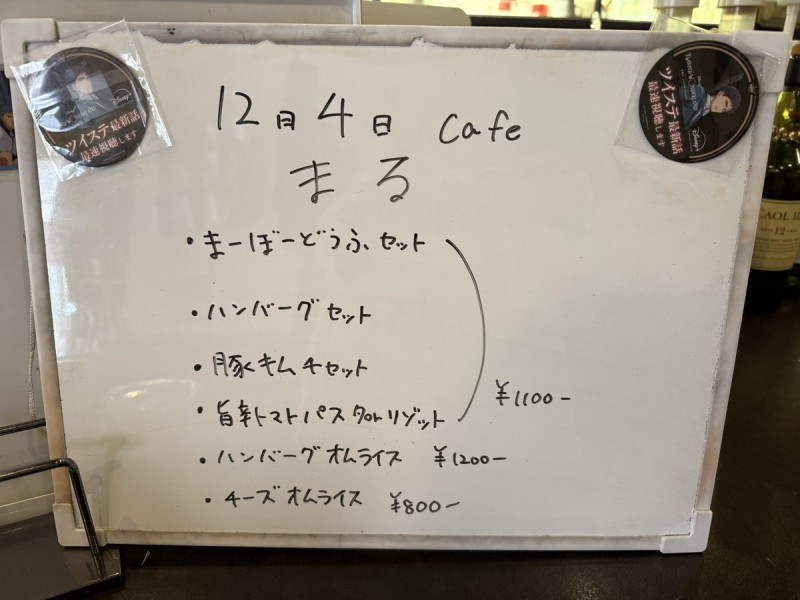 12月4日 Cafe
まる
・まーぼーどうふセット
・ハンバーグセット
・豚キムチセット
・旨辛トマトパスタorリゾット
¥1100-
・ハンバーグオムライス ¥1200-
・チーズオムライス ¥800-
Disney+
ツイステ最新話
最速視聴します
Disney+
ツイステ最新話
最速視聴します
CAOL IL
12